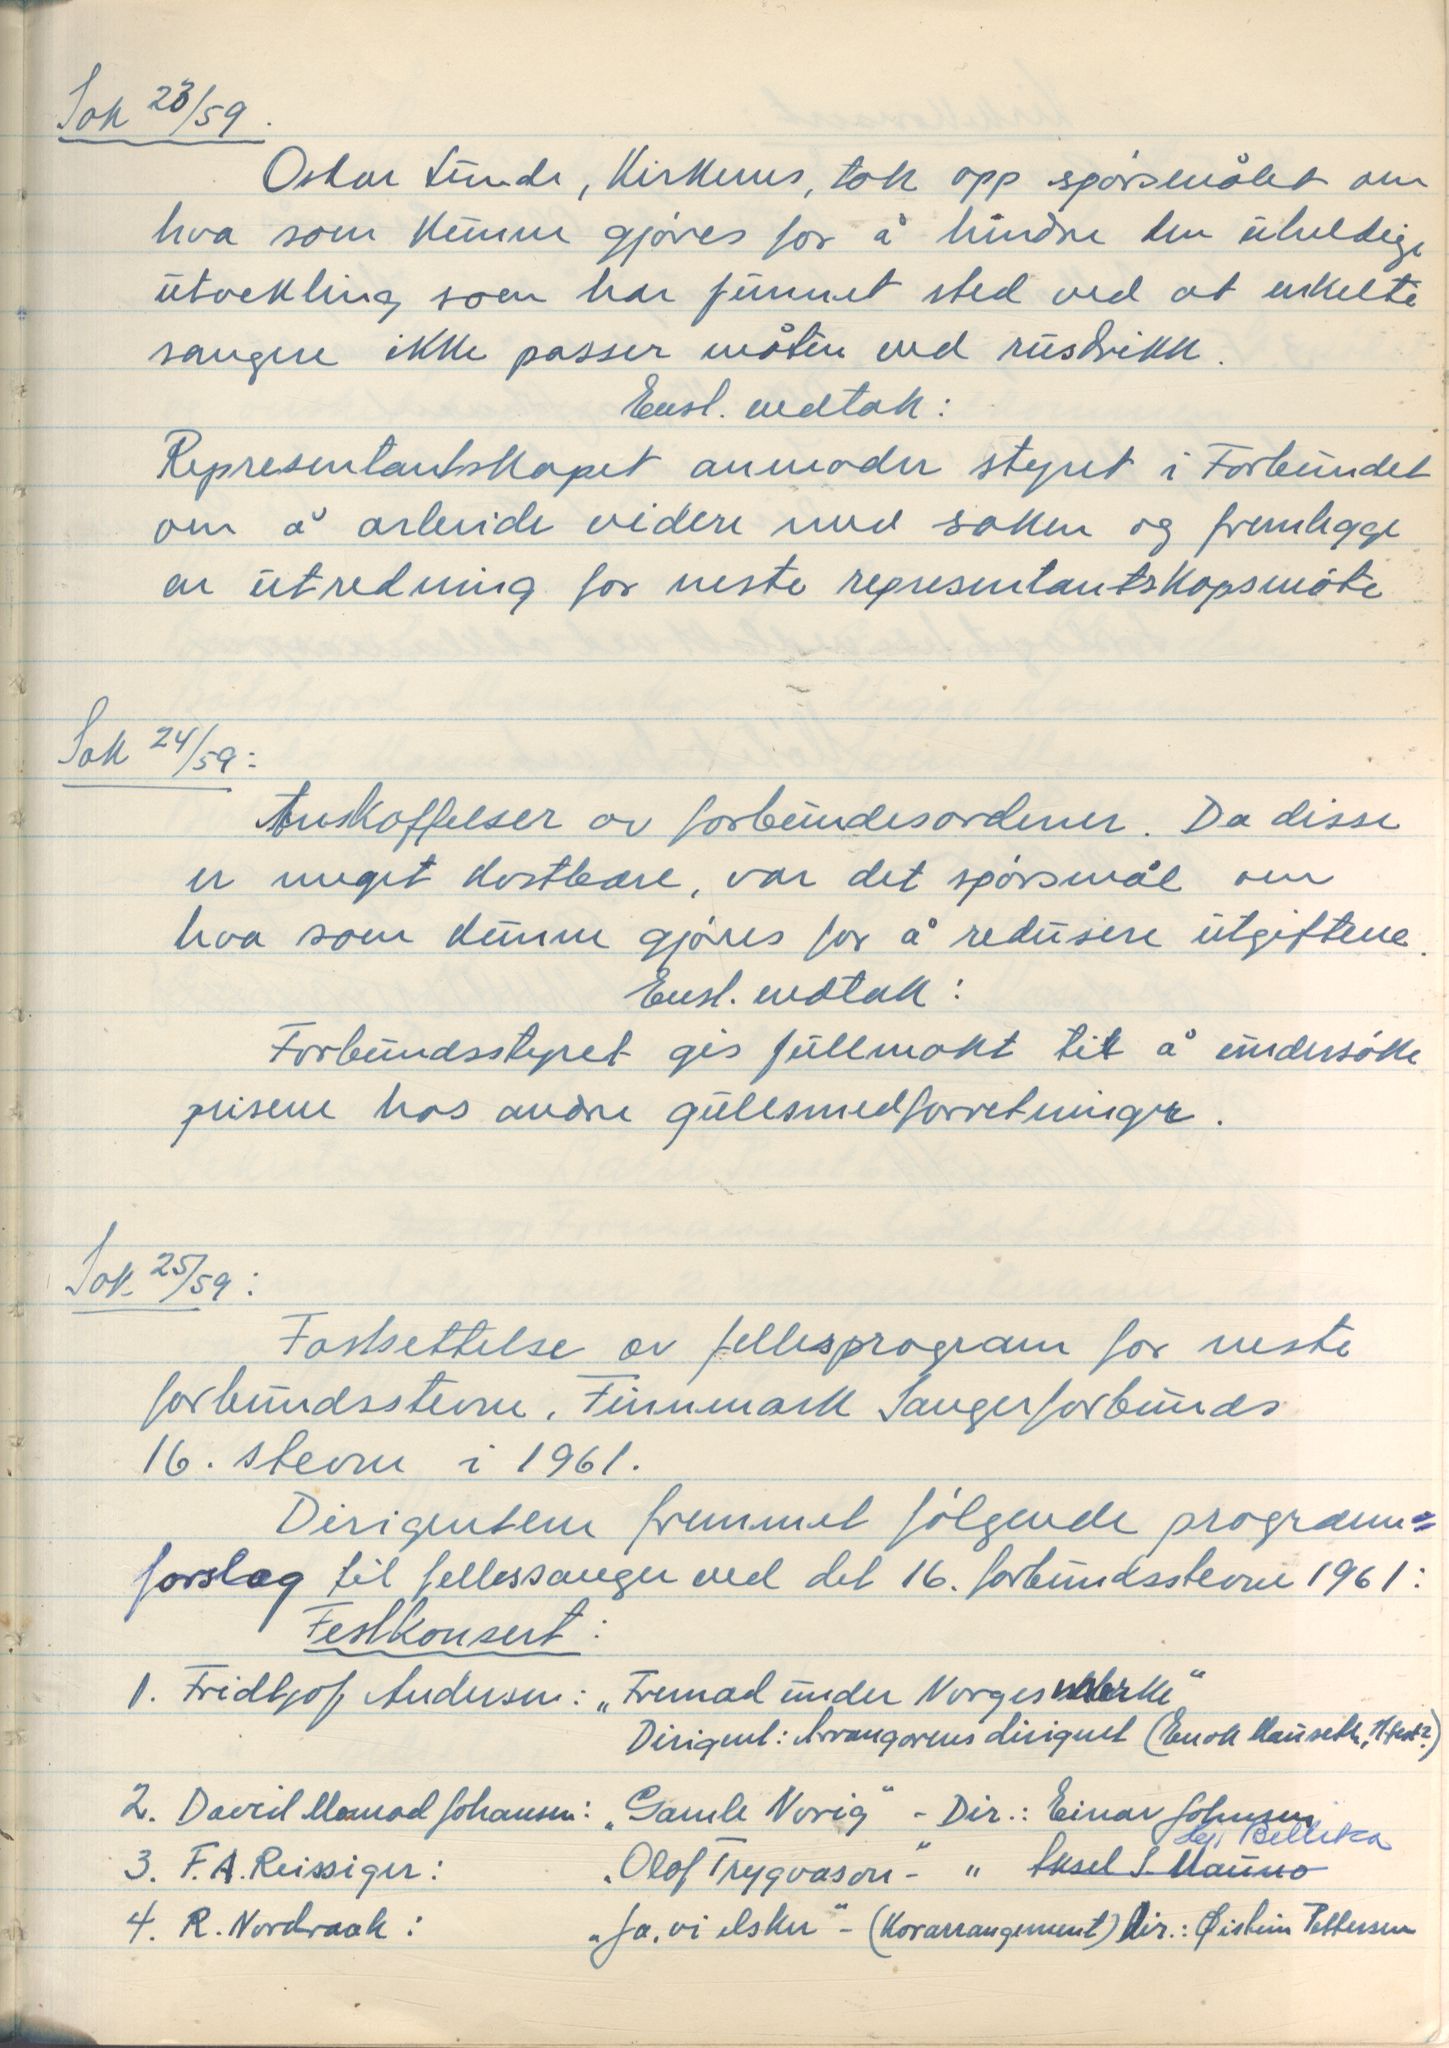 Sak 23/59.
Oskar Lunde, Kirkenes, tok opp spørsmålet om
hva som kunne gjøres for å hindre den uheldige
utvekling som har funnet sted ved at enkelte
sangere ikke passer måten med rusdrikk.
Ensl. vedtak:
Representantskapet anmoder styret i Forbundet
om å arbeide videre med saken og fremlegge
en utredning for neste representantskapsmøte
Sak 24/59:
Anskaffelser av forbundesordener. Da disse
er meget kostbare, var det spørsmål om
hva som kunne gjøres for å redusere utgiftene.
Ensl. vedtak:
Forbundsstyret gis fullmakt til å undersøke
prisene hos andre gullsmedforretninger.
Sak 25/59:
Fastsettelse av fellesprogram for neste
forbundsstevne. Finnmark Sangerforbunds
16. stevne i 1961.
Dirigentene fremmet følgende program=
forslag til fellessanger ved det 16. forbundsstevne 1961:
Festkonsert:
1. Fridtjof Andersen: „Fremad under Norges merke"
Dirigent: Arrangørens dirigent (Enok Hauseth, H.fest?)
2. David Monrad Johansen: „Gamle Norig" - Dir.: Einar Johnsen
Bellika
3. F.A. Reissiger: „Olaf Trygvason" - " Aksel S. Mauno
4. R. Nordraak: „Ja, vi elsker" - (Korarrangement) Dir.: Øistein Pettersen